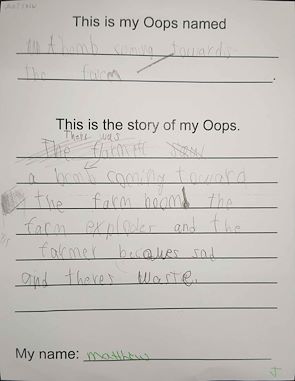 This is my Oops named
A bomb coming towards
the farm
This is the story of my Oops.
There was
The farmer saw
a bomb coming toward
the farm boom! the
farm explodes and the
farmer becomes sad
and theres waste.
My name: matthew
J